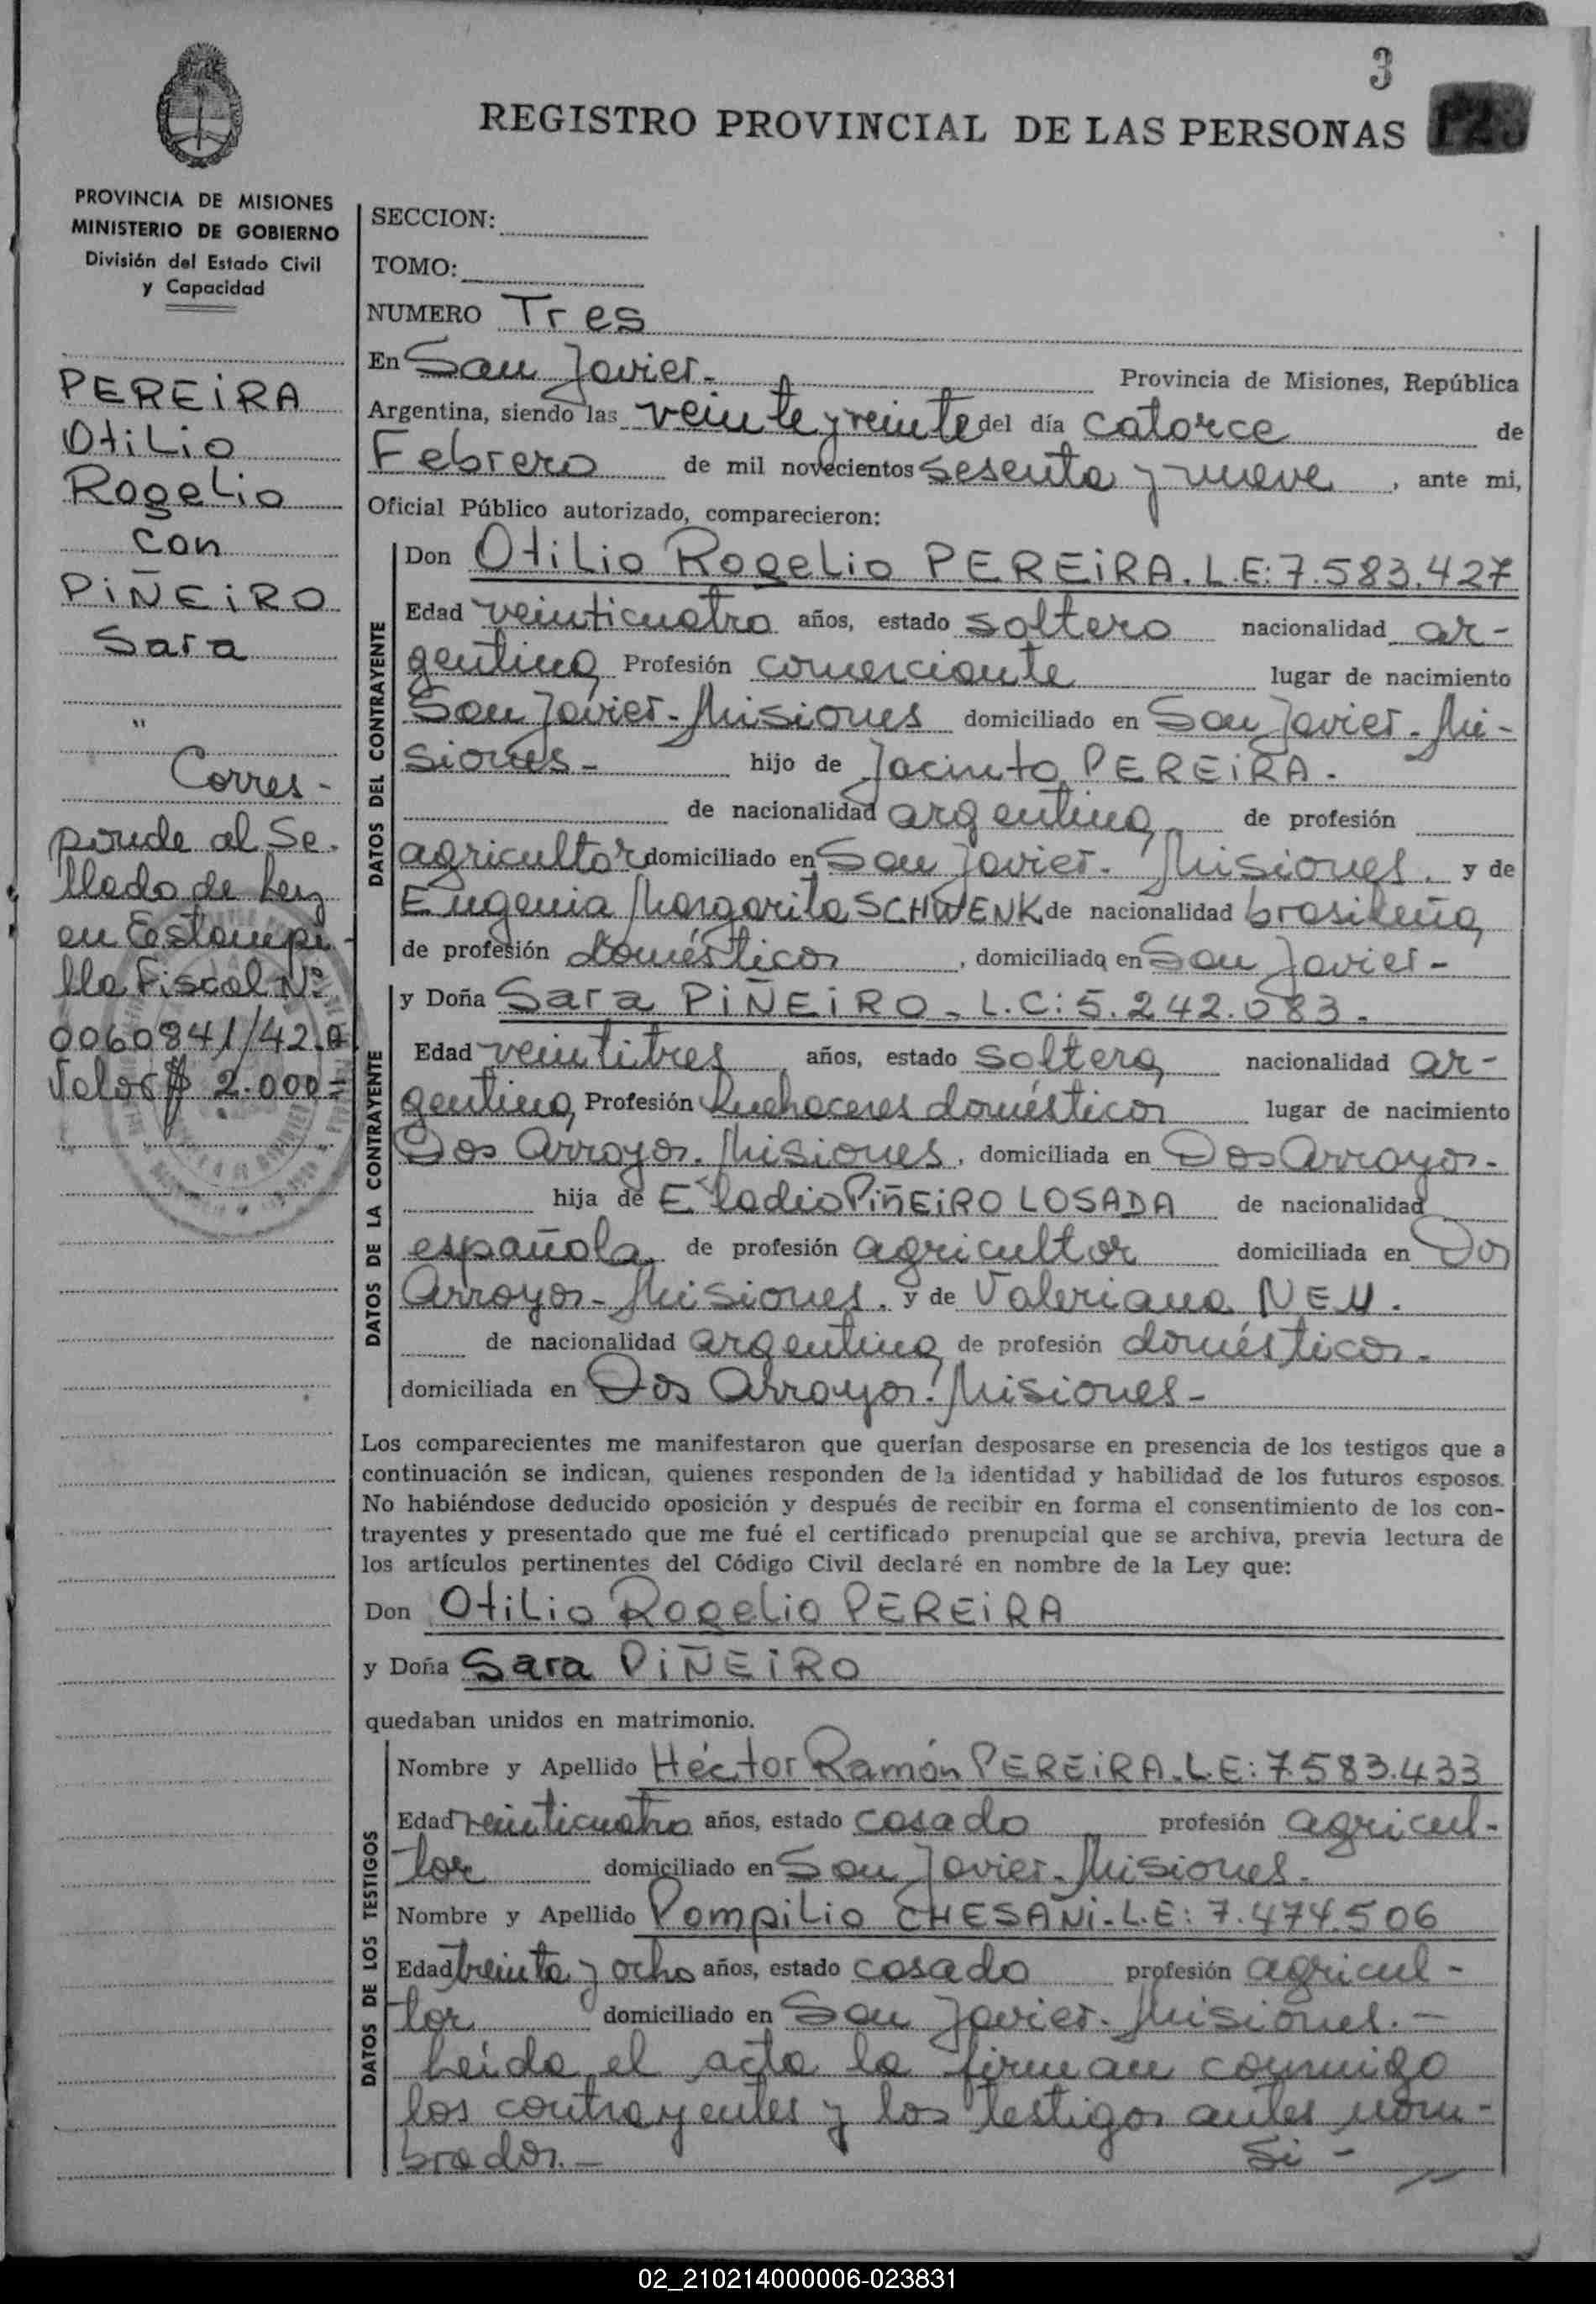 3
REGISTRO PROVINCIAL DE LAS PERSONAS
PROVINCIA DE MISIONES
MINISTERIO DE GOBIERNO
División del Estado Civil
y Capacidad
PEREIRA
Otilio
Rogelio
con
PIÑEIRO
Sara
"
Corres-
ponde al Se-
llado de Ley
en Estampi-
lla Fiscal Nº
0060841/42.a
Valor $ 2.000=
SECCION:
TOMO:
NUMERO Tres
En San Javier- Provincia de Misiones, República
Argentina, siendo las veinte y veinte del día catorce de
Febrero de mil novecientos sesenta y nueve, ante mi,
Oficial Público autorizado, comparecieron:
DATOS DEL CONTRAYENTE
Don Otilio Rogelio PEREIRA. L.E: 7.583.427
Edad veinticuatro años, estado soltero nacionalidad ar-
gentina, Profesión comerciante lugar de nacimiento
San Javier-Misiones domiciliado en San Javier-Mi-
siones- hijo de Jacinto PEREIRA.
de nacionalidad argentina, de profesión
agricultor domiciliado en San Javier-Misiones. y de
Eugenia Margarita SCHWENK de nacionalidad brasileña,
de profesión domésticos, domiciliada en San Javier-
DATOS DE LA CONTRAYENTE
y Doña Sara PIÑEIRO - L.C: 5.242.083.
Edad veintitres años, estado soltera, nacionalidad ar-
gentina, Profesión Quehaceres domésticos lugar de nacimiento
Dos Arroyos. Misiones, domiciliada en Dos Arroyos-
hija de Eladio PIÑEIRO LOSADA de nacionalidad
española, de profesión agricultor domiciliada en Dos
Arroyos-Misiones. y de Valeriana NEU.
de nacionalidad argentina, de profesión domésticos.
domiciliada en Dos Arroyos. Misiones-
Los comparecientes me manifestaron que querían desposarse en presencia de los testigos que a
continuación se indican, quienes responden de la identidad y habilidad de los futuros esposos.
No habiéndose deducido oposición y después de recibir en forma el consentimiento de los con-
trayentes y presentado que me fué el certificado prenupcial que se archiva, previa lectura de
los artículos pertinentes del Código Civil declaré en nombre de la Ley que:
Don Otilio Rogelio PEREIRA
y Doña Sara PIÑEIRO
quedaban unidos en matrimonio.
DATOS DE LOS TESTIGOS
Nombre y Apellido Héctor Ramón PEREIRA. L.E: 7.583.433
Edad veinticuatro años, estado casado profesión agricul-
tor domiciliado en San Javier-Misiones.
Nombre y Apellido Pompilio CHESANI-L.E: 7.474.506
Edad treinta y ocho años, estado casado profesión agricul-
tor domiciliado en San Javier-Misiones.-
Leída el acta la firman conmigo
los contrayentes y los testigos antes nom-
brados.- Si -
02_210214000006-023831